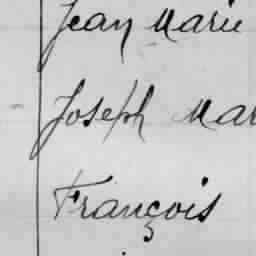 Jean Marie
Joseph Mar
François